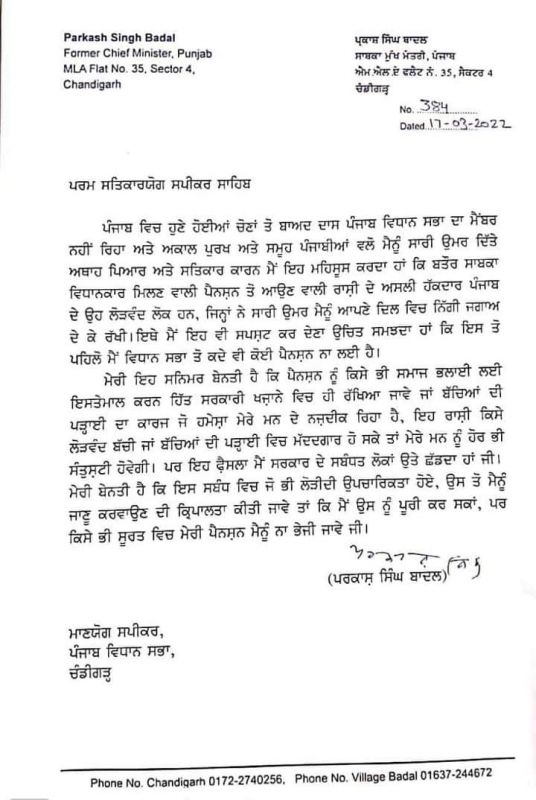 Parkash Singh Badal
Former Chief Minister, Punjab
MLA Flat No. 35, Sector 4,
Chandigarh
ਪ੍ਰਕਾਸ਼ ਸਿੰਘ ਬਾਦਲ
ਸਾਬਕਾ ਮੁੱਖ ਮੰਤਰੀ, ਪੰਜਾਬ
ਐਮ.ਐਲ.ਏ ਫਲੈਟ ਨੰ. 35, ਸੈਕਟਰ 4
ਚੰਡੀਗੜ੍ਹ
No. 384
Dated 17-03-2022
ਪਰਮ ਸਤਿਕਾਰਯੋਗ ਸਪੀਕਰ ਸਾਹਿਬ
ਪੰਜਾਬ ਵਿਚ ਹੁਣੇ ਹੋਈਆਂ ਚੋਣਾਂ ਤੋ ਬਾਅਦ ਦਾਸ ਪੰਜਾਬ ਵਿਧਾਨ ਸਭਾ ਦਾ ਮੈਂਬਰ
ਨਹੀਂ ਰਿਹਾ ਅਤੇ ਅਕਾਲ ਪੁਰਖ ਅਤੇ ਸਮੂਹ ਪੰਜਾਬੀਆਂ ਵਲੋ ਮੈਨੂੰ ਸਾਰੀ ਉਮਰ ਦਿੱਤੇ
ਅਥਾਹ ਪਿਆਰ ਅਤੇ ਸਤਿਕਾਰ ਕਾਰਨ ਮੈਂ ਇਹ ਮਹਿਸੂਸ ਕਰਦਾ ਹਾਂ ਕਿ ਬਤੌਰ ਸਾਬਕਾ
ਵਿਧਾਨਕਾਰ ਮਿਲਣ ਵਾਲੀ ਪੈਨਸ਼ਨ ਤੋ ਆਉਣ ਵਾਲੀ ਰਾਸ਼ੀ ਦੇ ਅਸਲੀ ਹੱਕਦਾਰ ਪੰਜਾਬ
ਦੇ ਉਹ ਲੋੜਵੰਦ ਲੋਕ ਹਨ, ਜਿਨ੍ਹਾਂ ਨੇ ਸਾਰੀ ਉਮਰ ਮੈਨੂੰ ਆਪਣੇ ਦਿਲ ਵਿਚ ਨਿੱਗੀ ਜਗਾਅ
ਦੇ ਕੇ ਰੱਖੀ। ਇਥੇ ਮੈਂ ਇਹ ਵੀ ਸਪਸ਼ਟ ਕਰ ਦੇਣਾ ਉਚਿਤ ਸਮਝਦਾ ਹਾਂ ਕਿ ਇਸ ਤੋ
ਪਹਿਲੋ ਮੈਂ ਵਿਧਾਨ ਸਭਾ ਤੋ ਕਦੇ ਵੀ ਕੋਈ ਪੈਨਸ਼ਨ ਨਾ ਲਈ ਹੈ।
ਮੇਰੀ ਇਹ ਸਨਿਮਰ ਬੇਨਤੀ ਹੈ ਕਿ ਪੈਨਸ਼ਨ ਨੂੰ ਕਿਸੇ ਭੀ ਸਮਾਜ ਭਲਾਈ ਲਈ
ਇਸਤੇਮਾਲ ਕਰਨ ਹਿੱਤ ਸਰਕਾਰੀ ਖਜ਼ਾਨੇ ਵਿਚ ਹੀ ਰੱਖਿਆ ਜਾਵੇ ਜਾਂ ਬੱਚਿਆਂ ਦੀ
ਪੜ੍ਹਾਈ ਦਾ ਕਾਰਜ ਜੋ ਹਮੇਸ਼ਾ ਮੇਰੇ ਮਨ ਦੇ ਨਜ਼ਦੀਕ ਰਿਹਾ ਹੈ, ਇਹ ਰਾਸ਼ੀ ਕਿਸੇ
ਲੋੜਵੰਦ ਬੱਚੀ ਜਾਂ ਬੱਚਿਆਂ ਦੀ ਪੜ੍ਹਾਈ ਵਿਚ ਮੱਦਦਗਾਰ ਹੋ ਸਕੇ ਤਾਂ ਮੇਰੇ ਮਨ ਨੂੰ ਹੋਰ ਭੀ
ਸੰਤੁਸ਼ਟੀ ਹੋਵੇਗੀ। ਪਰ ਇਹ ਫੈਸਲਾ ਮੈਂ ਸਰਕਾਰ ਦੇ ਸਬੰਧਤ ਲੋਕਾਂ ਉਤੇ ਛੱਡਦਾ ਹਾਂ ਜੀ।
ਮੇਰੀ ਬੇਨਤੀ ਹੈ ਕਿ ਇਸ ਸਬੰਧ ਵਿਚ ਜੋ ਭੀ ਲੋੜੀਦੀ ਉਪਚਾਰਿਕਤਾ ਹੋਏ, ਉਸ ਤੋ ਮੈਨੂੰ
ਜਾਣੂ ਕਰਵਾਉਣ ਦੀ ਕ੍ਰਿਪਾਲਤਾ ਕੀਤੀ ਜਾਵੇ ਤਾਂ ਕਿ ਮੈਂ ਉਸ ਨੂੰ ਪੂਰੀ ਕਰ ਸਕਾਂ, ਪਰ
ਕਿਸੇ ਭੀ ਸੂਰਤ ਵਿਚ ਮੇਰੀ ਪੈਨਸ਼ਨ ਮੈਨੂੰ ਨਾ ਭੇਜੀ ਜਾਵੇ ਜੀ।
(ਪਰਕਾਸ਼ ਸਿੰਘ ਬਾਦਲ)
ਮਾਣਯੋਗ ਸਪੀਕਰ,
ਪੰਜਾਬ ਵਿਧਾਨ ਸਭਾ,
ਚੰਡੀਗੜ੍ਹ
Phone No. Chandigarh 0172-2740256, Phone No. Village Badal 01637-244672